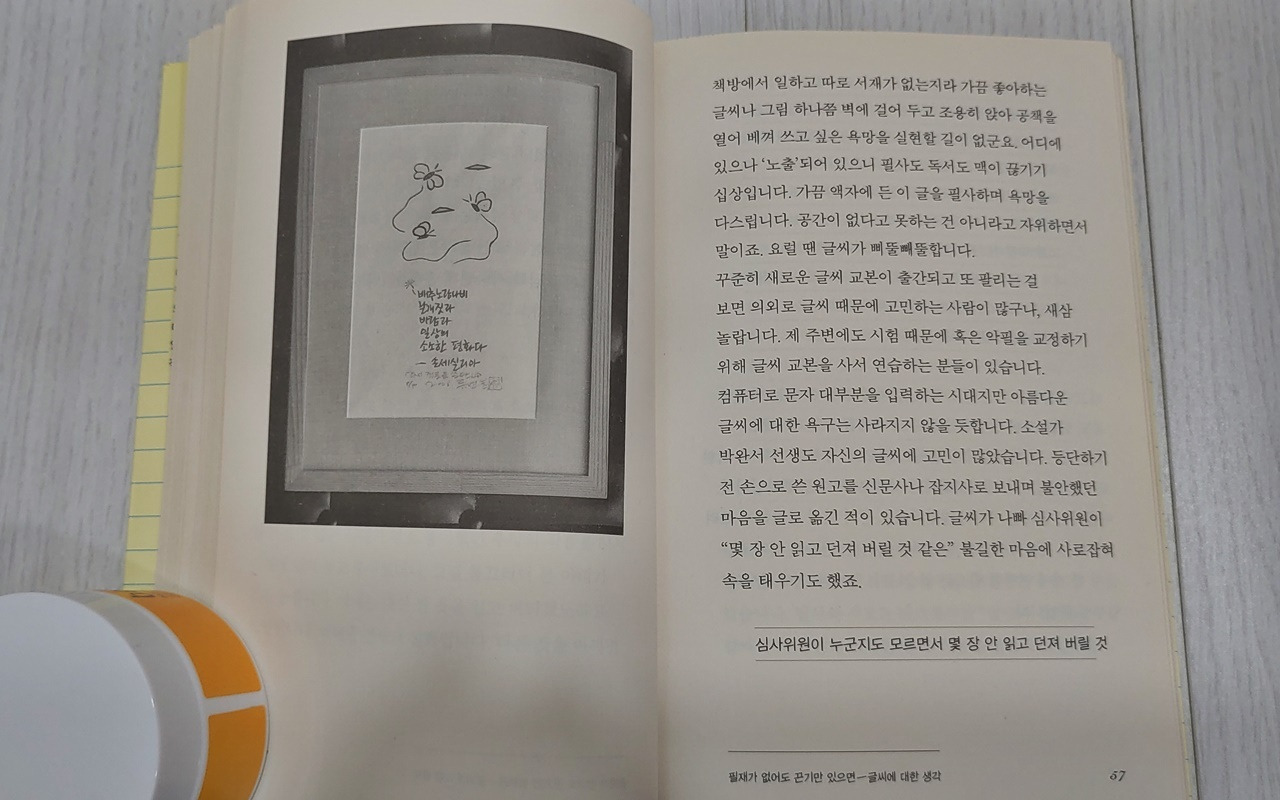 배추노랑나비
날개짓과
바람과
일상의
소소한 평화다
손세실리아
책방에서 일하고 따로 서재가 없는지라 가끔 좋아하는
글씨나 그림 하나쯤 벽에 걸어 두고 조용히 앉아 공책을
열어 베껴 쓰고 싶은 욕망을 실현할 길이 없군요. 어디에
있으나 ‘노출’되어 있으니 필사도 독서도 맥이 끊기기
십상입니다. 가끔 액자에 든 이 글을 필사하며 욕망을
다스립니다. 공간이 없다고 못하는 건 아니라고 자위하면서
말이죠. 요럴 땐 글씨가 삐뚤빼뚤합니다.
꾸준히 새로운 글씨 교본이 출간되고 또 팔리는 걸
보면 의외로 글씨 때문에 고민하는 사람이 많구나, 새삼
놀랍니다. 제 주변에도 시험 때문에 혹은 악필을 교정하기
위해 글씨 교본을 사서 연습하는 분들이 있습니다.
컴퓨터로 문자 대부분을 입력하는 시대지만 아름다운
글씨에 대한 욕구는 사라지지 않을 듯합니다. 소설가
박완서 선생도 자신의 글씨에 고민이 많았습니다. 등단하기
전 손으로 쓴 원고를 신문사나 잡지사로 보내며 불안했던
마음을 글로 옮긴 적이 있습니다. 글씨가 나빠 심사위원이
“몇 장 안 읽고 던져 버릴 것 같은” 불길한 마음에 사로잡혀
속을 태우기도 했죠.
심사위원이 누군지도 모르면서 몇 장 안 읽고 던져 버릴 것
필재가 없어도 끈기만 있으면—글씨에 대한 생각
57